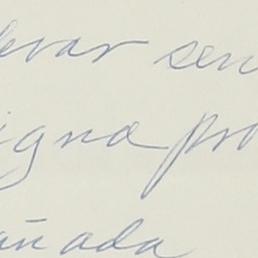 levar sen
igna pro
añada